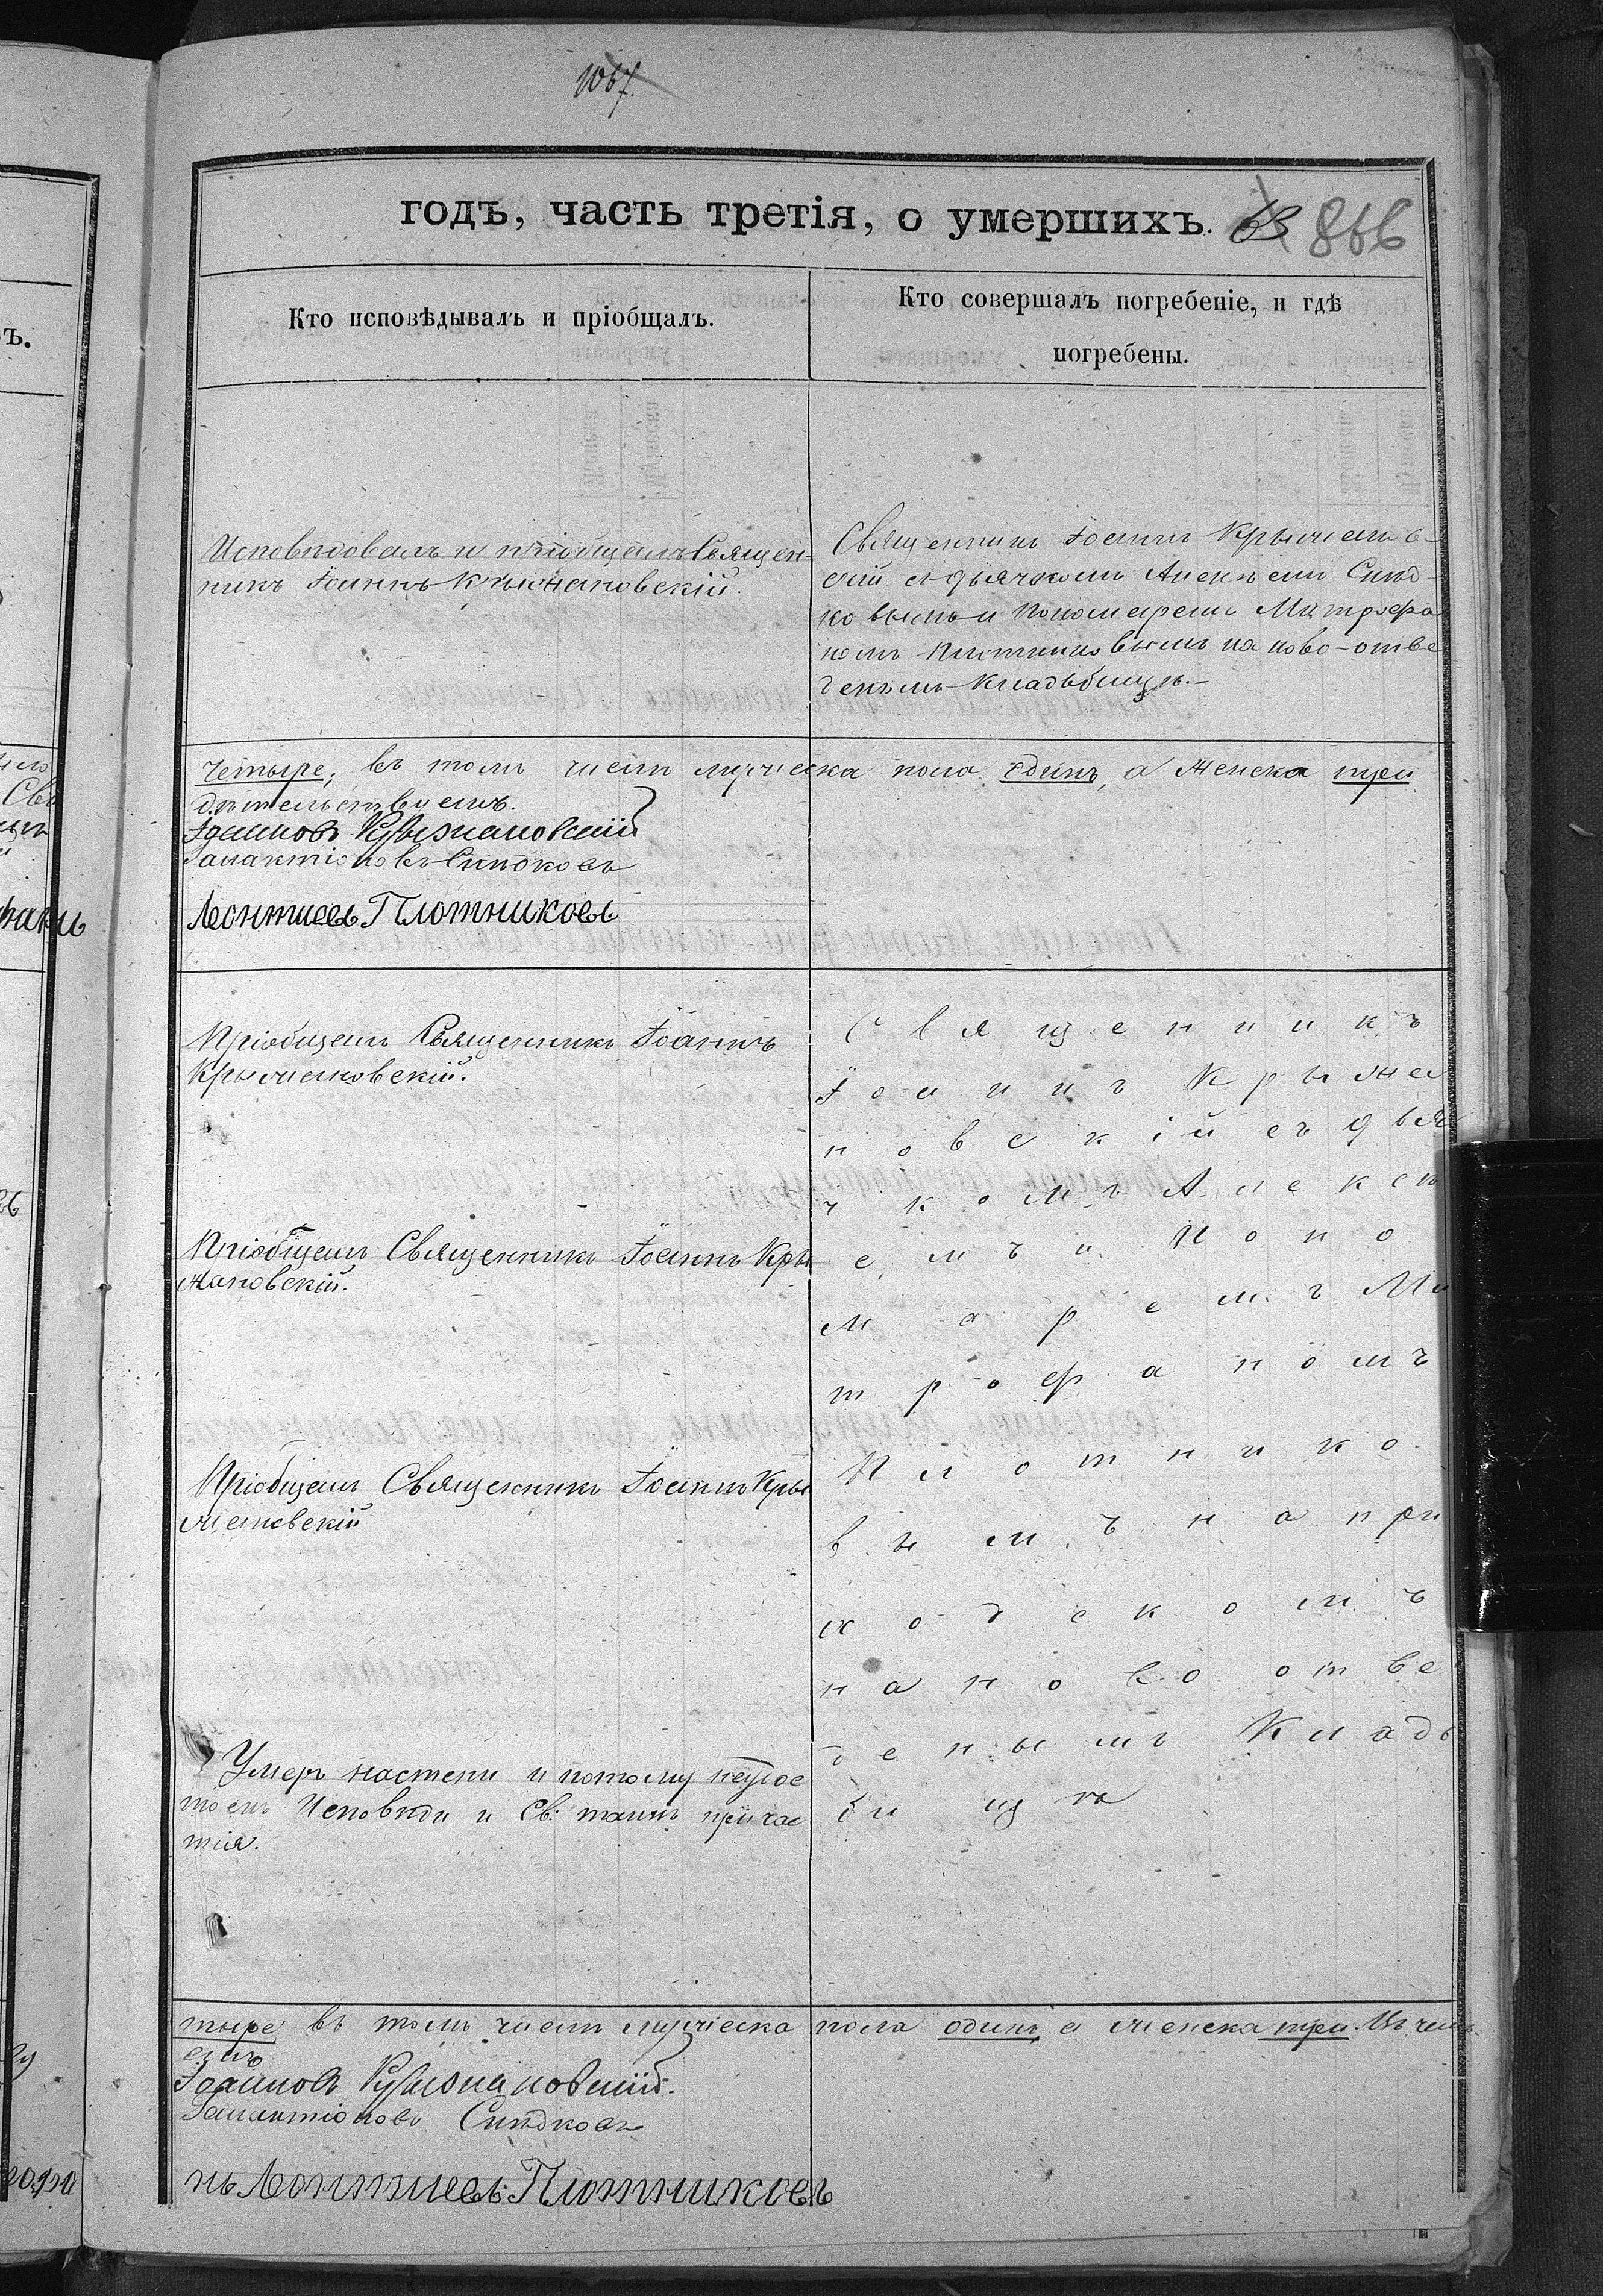 1067.
годъ, часть третія, о умершихъ. 63 866
Кто исповѣдывалъ и пріобщалъ.
Кто совершалъ погребеніе, и гдѣ
погребены.
Исповѣдовалъ и пріобщалъ Священ-
никъ Іоаннъ Крыжановскій.
Священникъ Іоаннъ Крыжанов-
скій съ дьячкомъ Алексѣемъ Сиѣд-
ковымъ и Пономаремъ Митрофа
номъ Плотниковымъ на ново-отве
деномъ Кладьбищѣ.-
четыре, въ томъ числѣ мужеска пола одинъ, а женска три
дѣтельствуемъ.
Іоанновъ Крыжановскій
Галактіоновъ Сиѣдковъ
Леонтиевъ Плотниковъ
Пріобщалъ Священникъ Іоаннъ
Крыжановскій.
Пріобщалъ Священникъ Іоаннъ Кры
жановскій.
Пріобщалъ Священникъ Іоаннъ Кры
жановскій
Умеръ настени и потому неудос
тоенъ Исповѣди и Св: таинъ причас
тія.
Священникъ
Іоаннъ Крыжа
новскій съ дья
чкомъ Алексѣ
емъ и Поно
маремъ Ми
трофаномъ
Плотнико
вымъ на при
ходскомъ
наново отве
деномъ Кладь
бищѣ
тыре въ томъ числѣ мужеска пола одинъ а женска три. Въ чемъ
емъ
Іоанновъ Крыжановскій.
Галактіоновъ Сиѣдковъ
нъ Леонтиевъ Плотниковъ